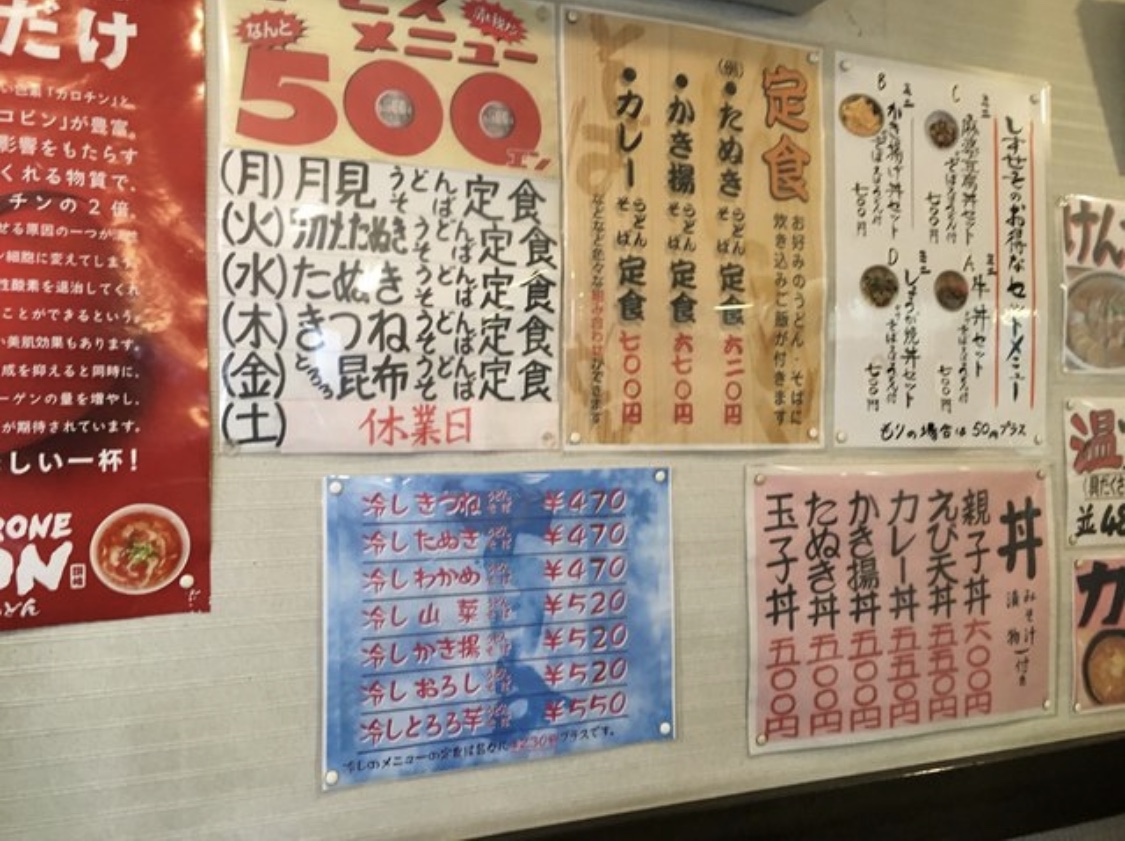 だけ
い色素「カロチン」と、
コピン」が豊富。
影響をもたらす
くれる物質で、
チンの2倍。
せる原因の一つが
細胞に変えてしま
性酸素を退治してくれ
ことができるという。
い美肌効果もあります。
成を抑えると同時に、
ーゲンの量を増やし、
が期待されています。
しい一杯!
RONE
ON
ービスメニュー
なんと
500エン
(月)月見うどんそば定食
(火)たぬきうどんそば定食
(水)たぬきうどんそば定食
(木)きつねうどんそば定食
(金)とろろ昆布うどんそば定食
(土)休業日
定食
お好みのうどん・そばに
炊き込みご飯が付きます
(例)
・たぬきうどんそば定食 六二〇円
・かき揚うどんそば定食 六七〇円
・カレーうどんそば定食 七〇〇円
などなど色々な組み合わせができます
のお得なセットメニュー
A ミニ牛丼セット
七〇〇円
C ミニ麻婆豆腐丼セット
七〇〇円
B ミニかき揚げ丼セット
七〇〇円
D ミニしょうが焼丼セット
七〇〇円
もりの場合は50円プラス
冷しきつねうどんそば ¥470
冷したぬきうどんそば ¥470
冷しわかめうどんそば ¥470
冷し山菜うどんそば ¥520
冷しかき揚うどんそば ¥520
冷しおろしうどんそば ¥520
冷しとろろ芋うどんそば ¥550
冷しのメニューの定食は各なに¥230円プラスです。
丼 みそ汁 漬物 付き
親子丼 六〇〇円
えび天丼 五五〇円
カレー丼 五五〇円
かき揚丼 五〇〇円
たぬき丼 五〇〇円
玉子丼 五〇〇円
けん
温
(具だくさ
並48
カ